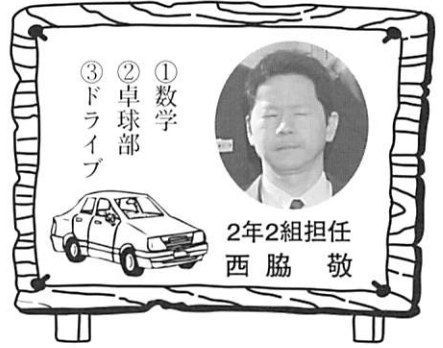 ①数学
②卓球部
③ドライブ
2年2組担任
西脇 敬